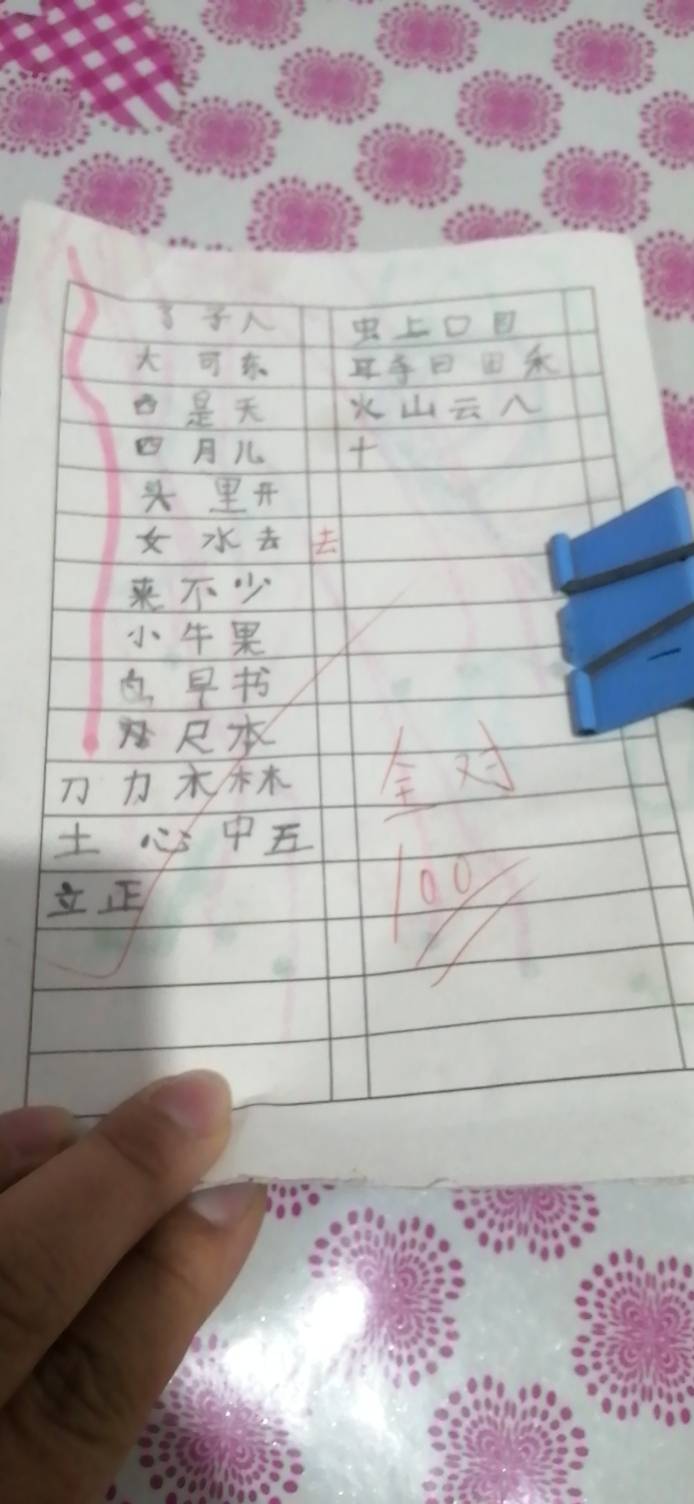 了 子 人
大 可 东
西 是 天
四 月 儿
头 里 开
女 水 去 去
来 不 少
小 牛 果
鸟 早 书
尺 本
刀 力 木 林
土 心 中 五
立 正
虫 上 口 目
耳 手 日 田 禾
火 山 云 八
十
全对
100